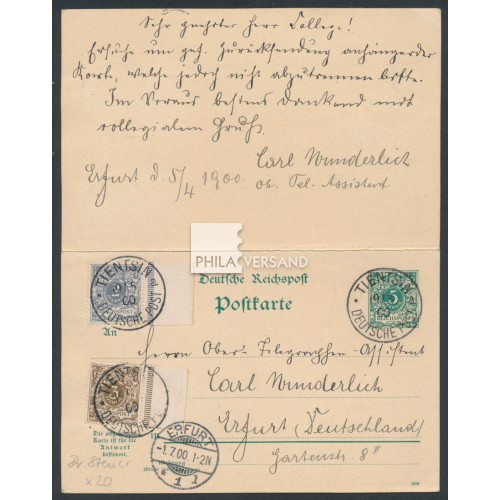 Sehr geehrter Herr College!
Ersuche um gef. Zurücksendung anhängender
Karte, welche jedoch nicht abzutrennen bitte.
Im Voraus bestens dankend mit
collegialem Gruß.
Carl Wunderlich
Erfurt d. 5/4 1900. Ob. Tel. Assistent
PHILA VERSAND
Deutsche Reichspost
Postkarte
TIENTSIN
DEUTSCHE POST
TIENTSIN
DEUTSCHE POST
5
An
Herrn Ober-Telegraphen-Assistent
Carl Wunderlich
TIENTSIN
3
in Erfurt (Deutschland)
Gartenstr. 8
ERFURT
1.7.00.1-2N
1 1
Die
Karte ist für die
Antwort
bestimmt.
x20